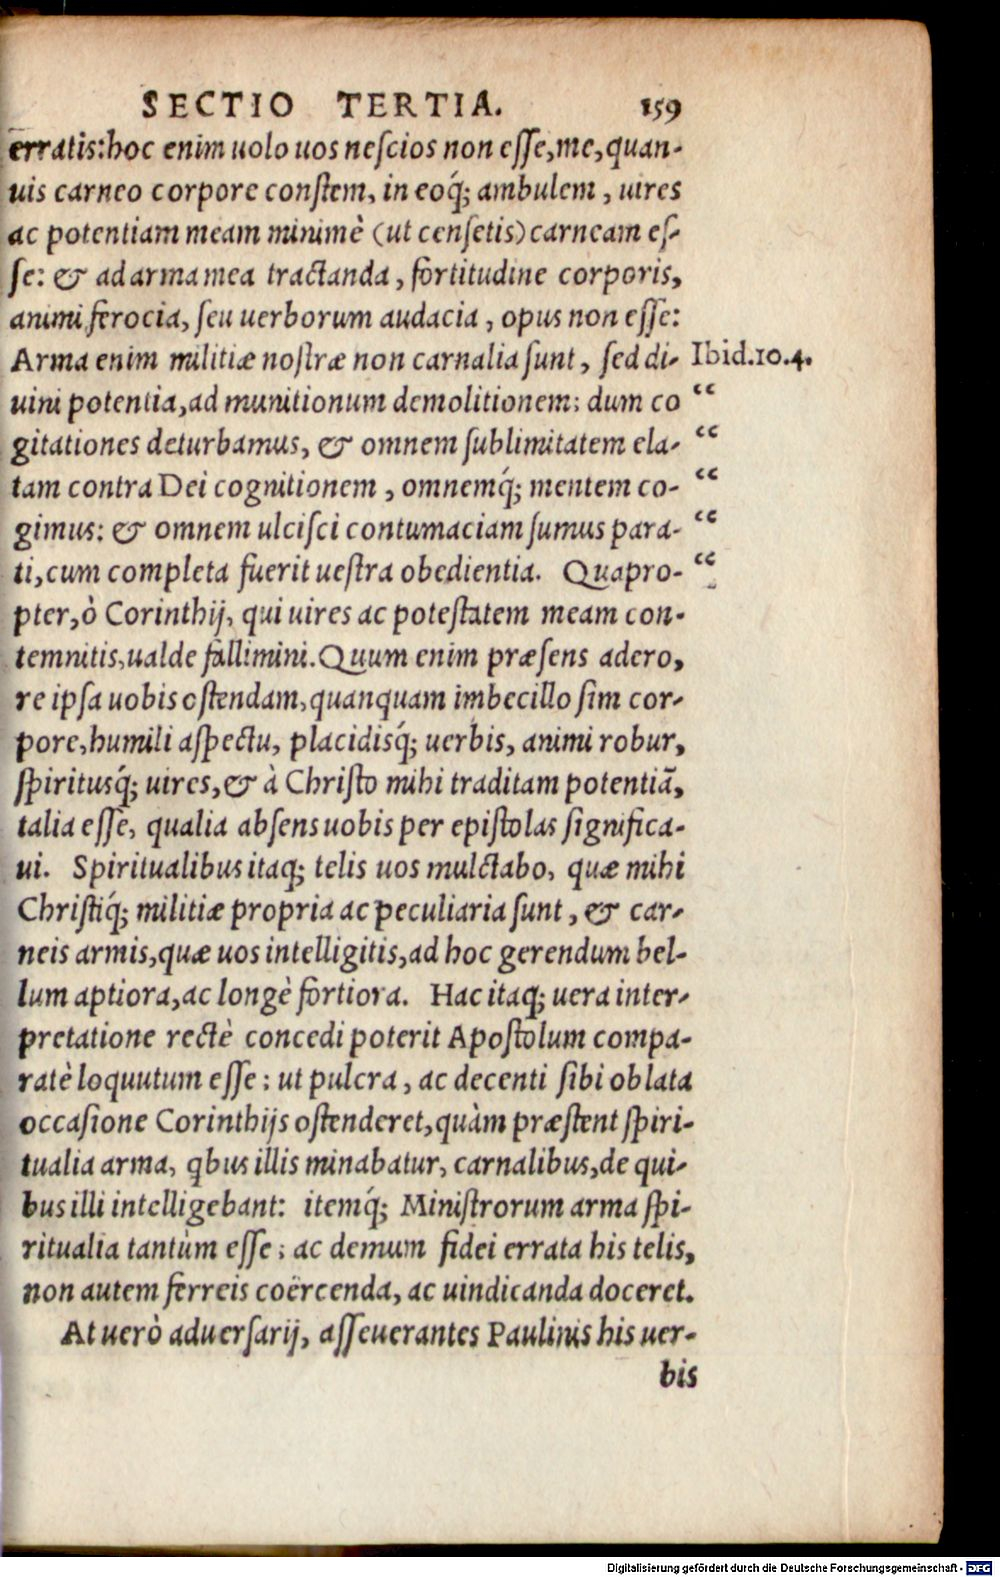 SECTIO TERTIA. 159
erratis: hoc enim uolo uos nescios non esse, me, quan-
uis carneo corpore constem, in eoq́; ambulem, uires
ac potentiam meam minimè (ut censetis) carneam es-
se: & ad arma mea tractanda, fortitudine corporis,
animi ferocia, seu uerborum audacia, opus non esse:
Arma enim militiæ nostræ non carnalia sunt, sed di- Ibid.10.4.
uini potentia, ad munitionum demolitionem: dum co “
gitationes deturbamus, & omnem sublimitatem ela- “
tam contra Dei cognitionem, omnemq́; mentem co- “
gimus: & omnem ulcisci contumaciam sumus para- “
ti, cum completa fuerit uestra obedientia. Quapro- “
pter, ò Corinthij, qui uires ac potestatem meam con-
temnitis, ualde fallimini. Quum enim præsens adero,
re ipsa uobis ostendam, quanquam imbecillo sim cor-
pore, humili aspectu, placidisq́; uerbis, animi robur,
spiritusq́; uires, & à Christo mihi traditam potentiã,
talia esse, qualia absens uobis per epistolas significa-
ui. Spiritualibus itaq; telis uos mulctabo, quæ mihi
Christiq́; militiæ propria ac peculiaria sunt, & car-
neis armis, quæ uos intelligitis, ad hoc gerendum bel-
lum aptiora, ac longè fortiora. Hac itaq; uera inter-
pretatione rectè concedi poterit Apostolum compa-
ratè loquutum esse: ut pulcra, ac decenti sibi oblata
occasione Corinthijs ostenderet, quàm præstent spiri-
tualia arma, qbus illis minabatur, carnalibus, de qui-
bus illi intelligebant: itemq́; Ministrorum arma spi-
ritualia tantùm esse: ac demum fidei errata his telis,
non autem ferreis coërcenda, ac uindicanda doceret.
At uerò aduersarij, asseuerantes Paulinis his uer-
bis
Digitalisierung gefördert durch die Deutsche Forschungsgemeinschaft - DFG